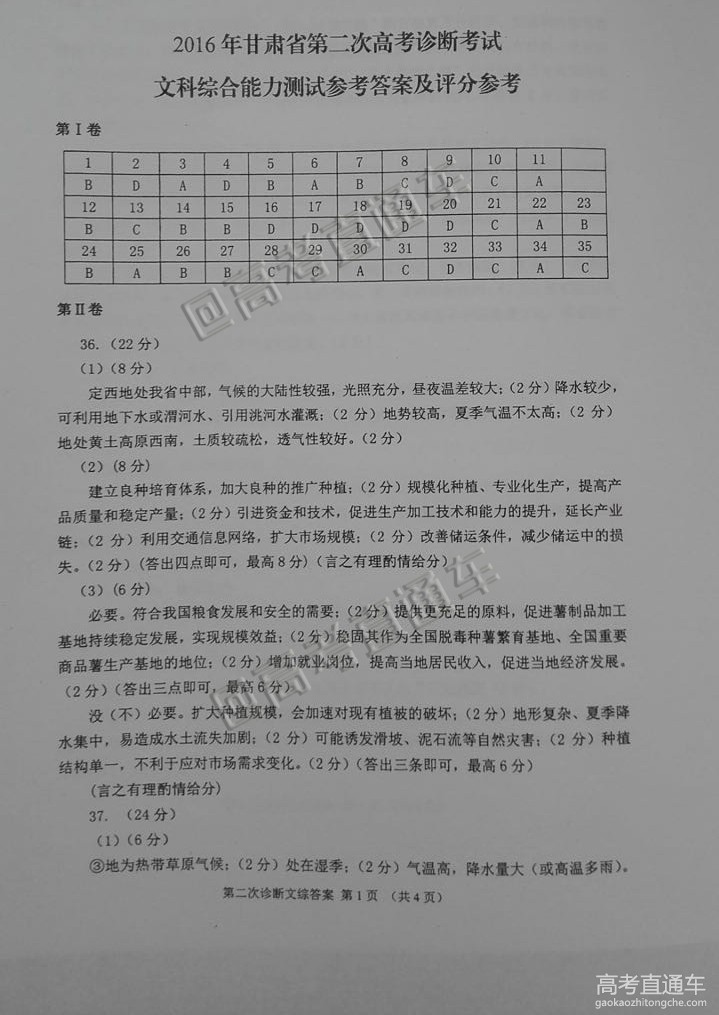 2016年甘肃省第二次高考诊断考试
文科综合能力测试参考答案及评分参考
第Ⅰ卷
1 2 3 4 5 6 7 8 9 10 11
B D A D B A B C D C A
12 13 14 15 16 17 18 19 20 21 22 23
B C B B D D D D D C A B
24 25 26 27 28 29 30 31 32 33 34 35
B A B B C C A C D C A C
第Ⅱ卷
36.（22分）
（1）（8分）
定西地处我省中部，气候的大陆性较强，光照充分，昼夜温差较大；（2分）降水较少，
可利用地下水或渭河水、引用洮河水灌溉；（2分）地势较高，夏季气温不太高；（2 分）
地处黄土高原西南，土质较疏松，透气性较好。（2分）
（2）（8分）
建立良种培育体系，加大良种的推广种植；（2分）规模化种植、专业化生产，提高产
品质量和稳定产量；（2分）引进资金和技术，促进生产加工技术和能力的提升，延长产业
链；（2 分）利用交通信息网络，扩大市场规模；（2 分）改善储运条件，减少储运中的损
失。（2分）（答出四点即可，最高8分）（言之有理酌情给分）
（3）（6分）
必要。符合我国粮食发展和安全的需要；（2分）提供更充足的原料，促进薯制品加工
基地持续稳定发展，实现规模效益；（2分）稳固其作为全国脱毒种薯繁育基地、全国重要
商品薯生产基地的地位；（2分）增加就业岗位，提高当地居民收入，促进当地经济发展。
（2分）（答出三点即可，最高6分）
没（不）必要。扩大种植规模，会加速对现有植被的破坏；（2分）地形复杂、夏季降
水集中，易造成水土流失加剧；（2 分）可能诱发滑坡、泥石流等自然灾害；（2 分）种植
结构单一，不利于应对市场需求变化。（2分）（答出三条即可，最高6分）
（言之有理酌情给分）
37.（24分）
（1）（6分）
③地为热带草原气候；（2分）处在湿季；（2分）气温高，降水量大（或高温多雨）。
第二次诊断文综答案 第1页 （共4页）
@高考直通车
@高考直通车
高考直通车
gaokaozhitongche.com